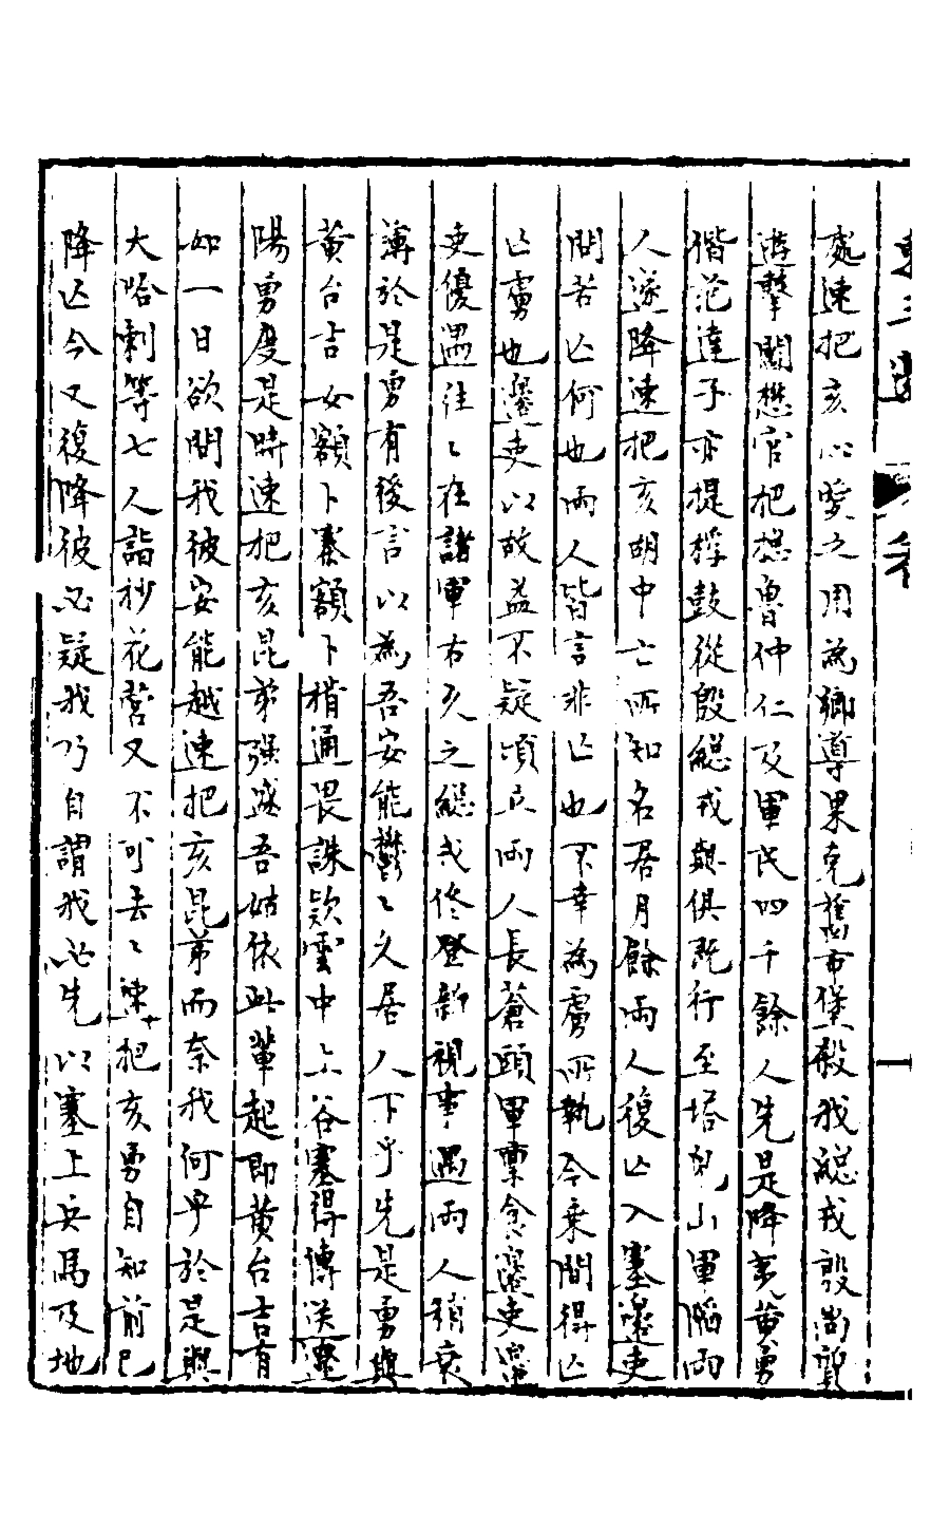 處速把亥心愛之用為鄉導果克舊市堡殺我總戎殷尚質
遊擊閻懋官把總魯仲仁及軍民四千餘人先是降夷黃勇
偕范達子亦提桴鼓從殷總戎與俱既行至塔兒山軍陷兩
人遂降速把亥胡中亡所知名居月餘兩人復亡入塞邊吏
問若亡何也兩人皆言非亡也不幸為虜所執今乘間得亡
亡虜也邊吏以故益不疑頃立兩人長蒼頭軍稟食邊吏
吏優溫往〻在諸軍右久之總戎佟登新視事遇兩人稍衰
薄於是勇有後言以為吾安能鬱〻久居人下乎先是勇與
黃台吉女額卜寨額卜稍通畏誅欵雲中上谷塞得傳送遼
陽勇度是時速把亥昆弟强盛吾姑依此輩起即黃台吉有
如一日欲問我彼安能越速把亥昆弟而柰我何乎於是與
大哈剌等七人詣抄花營又不可去〻速把亥勇自知前已
降亡今又復降彼必疑我乃自謂我必先以塞上兵馬及地